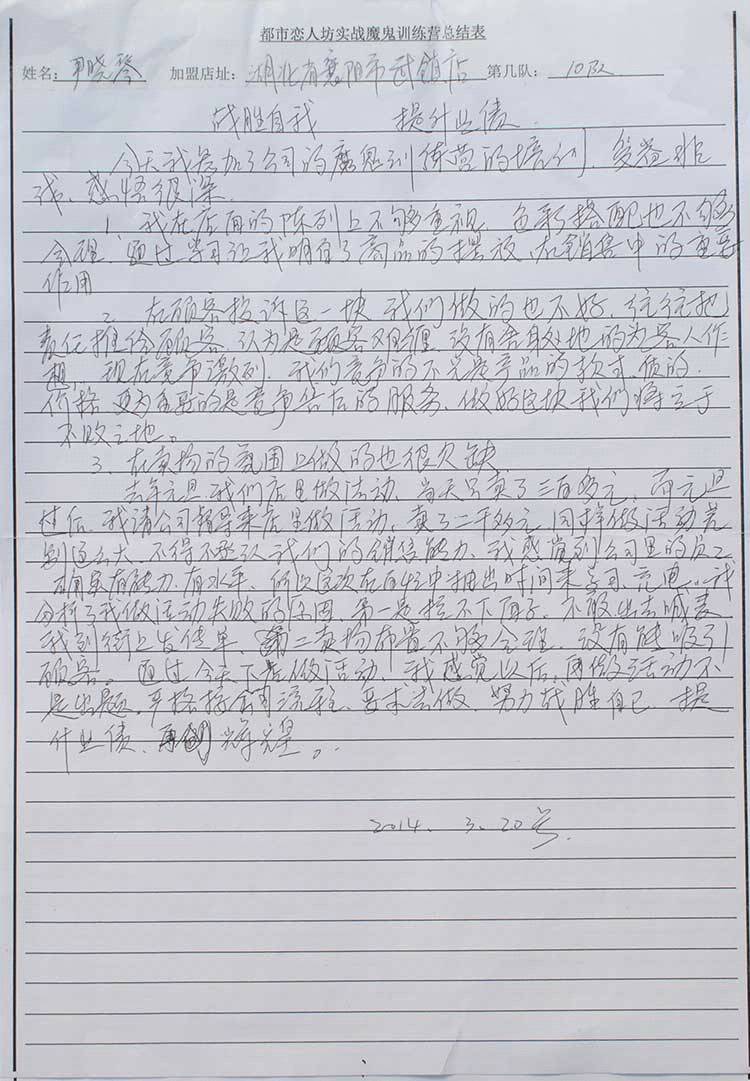 都市恋人坊实战魔鬼训练营总结表
姓名: 尹晓琴 加盟店址: 湖北省襄阳市武镇店 第几队: 10队
战胜自我 提升业债
今天我参加了公司的魔鬼训练营的培训、受益非
浅、感悟很深.
1、我在店面的陈列上不够重视、色彩搭配也不够
合理、通过学习让我明白了商品的摆放、在销售中的重要
作用
2、在顾客投诉这一块 我们做的也不好、往往把
责任推给顾客、认为是顾客 没有 地的为客人作
想、现在竞争激烈、我们竞争的不光是产品的款式、质的、
价格、更为重要的是竞争售后的服务、做好这块我们将立于
不败之地。
3、在卖场的氛围上做的也很欠缺
去年元旦、我们店里做活动、当天只卖了三百多元、而元旦
过后、我请公司督导来店里做活动、卖了二千多元、同样做活动差
别这么大、不得不 我们的销售能力、我感觉到公司里的员工
确实有能力、有水平、所以这次在百忙中抽出时间来学习、充电、我
分析了我做活动失败的原因、第一是拉不下面子、不敢出去喊麦
我到街上发传单、第二卖场布置不够合理、没有能吸引
顾客。通过今天下店做活动、我感觉以后、再做活动不
是出题、严格按 流程、要求去做、努力战胜自己、提
升业债、再创辉煌。
2014、3、20号